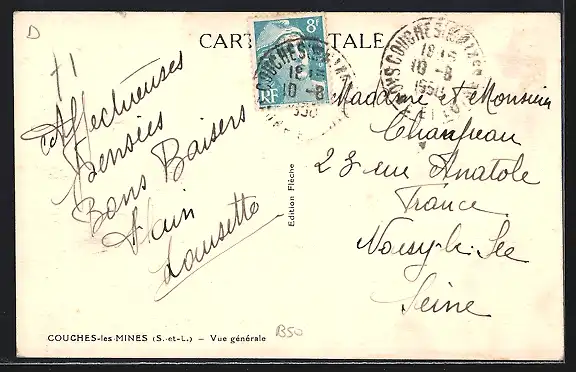 D
CARTE POSTALE
8F
RF
COUCHES-LES-MINES
18
10 - 8
1950
COUCHES-LES-MINES
18
10 - 8
1950
Affectueuses
Pensées
Bons Baisers
Alain
Madame et Monsieur
23 rue Anatole
France
Noisy-le-Sec
Seine
Edition Flèche
COUCHES-les-MINES (S.-et-L.) – Vue générale
B50